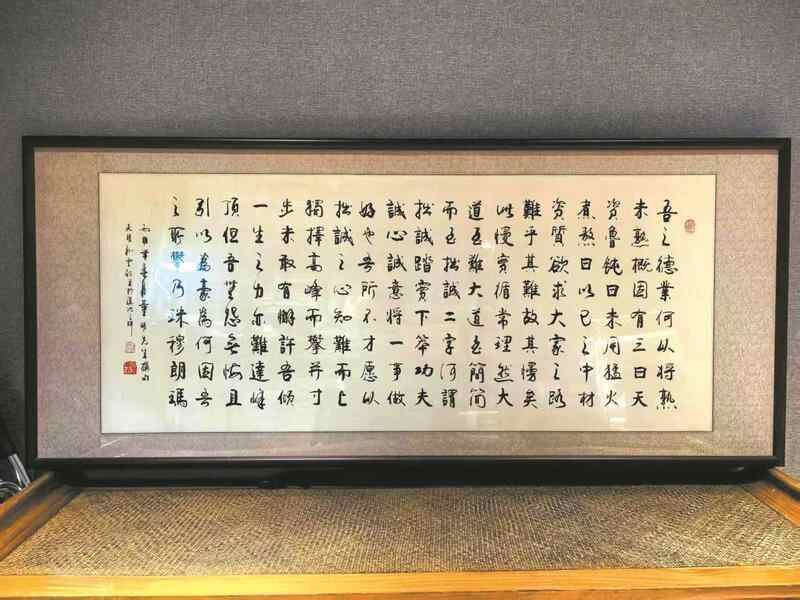 吾之德業何以將熟
未熟概因有三曰天
資魯鈍曰未用猛火
煮熬曰以己之中材
資質欲求大家之路
難乎其難故其慢矣
此慢實循常理然大
道至難大道至簡簡
而至拙誠二字何謂
拙誠踏實下笨功夫
誠心誠意將一事做
好也吾所不才願以
拙誠之心知難而上
獨擇高峰而攀并寸
步未敢有懈許吾傾
一生之力亦難達峰
頂但吾無怨無悔且
引以為豪為何因吾
之所攀乃珠穆朗瑪
先生撰句